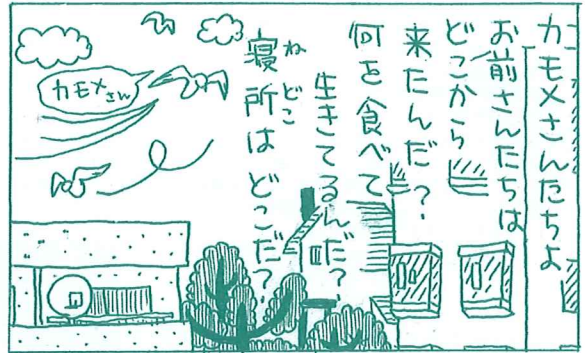 カモメさんたちよ
お前さんたちは
どこから
来たんだ？
何を食べて
生きてるんだ？
ねどこ
寝所はどこだ？
カモメさん